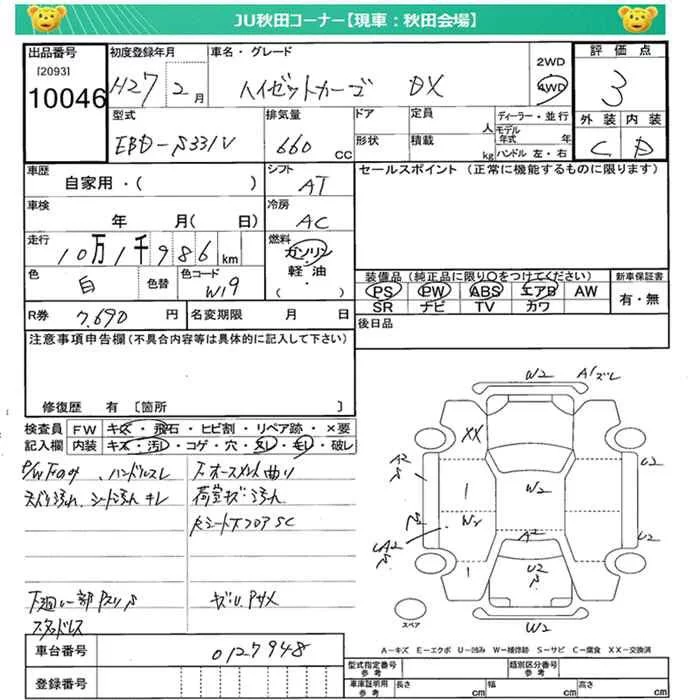 JU秋田コーナー【現車：秋田会場】
出品番号 初度登録年月 車名・グレード 2WD 評価点
[2093]
10046 H27 2月 ハイゼットカーゴ DX 4WD 3
型式 排気量 ドア 定員 人 ディーラー・並行 外装 内装
EBD-S331V 660 CC 形状 積載 kg モデル年式 年 ハンドル 左・右 C D
車歴 シフト セールスポイント (正常に機能するものに限ります)
自家用・( ) AT
車検 冷房
年 月( 日) AC
走行 燃料
10万1千986km ガソリン
色 色替 色コード 軽油
白 W19 ( )
装備品 (純正品に限り○をつけてください) 新車保証書
PS PW ABS エアB AW 有・無
SR ナビ TV カワ
R券 7,690円 名変期限 月 日
後日品
注意事項申告欄(不具合内容等は具体的に記入して下さい)
修復歴 有 〔箇所 〕
検査員 FW キズ・飛石・ヒビ割・リペア跡・×要
記入欄 内装 キズ・汚レ・コゲ・穴・スレ・キレ・破レ
ハンドルスレ
シート汚れ キレ
荷室キズ・汚れ
下廻り一部P
スタッドレス
W2
A1ズレ
XX
A2
S
U2
W2
W2
A2
U2
S
W2
スペア
A－キズ E－エクボ U－凹み W－補修跡 S－サビ C－腐食 XX－交換済
車台番号 0127948
登録番号
型式指定番号 参考 類別区分番号 参考
車庫証明用 参考 長さ cm 幅 cm 高さ cm